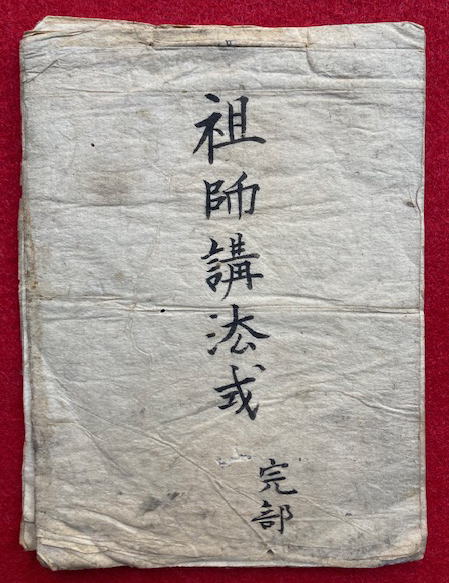 祖師講法式
完部